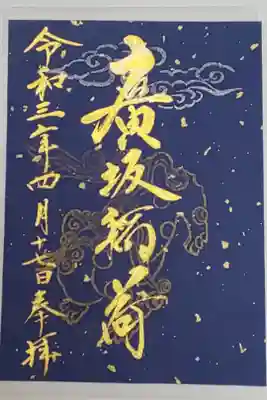 奉拝
廣坂稲荷
令和三年四月十七日